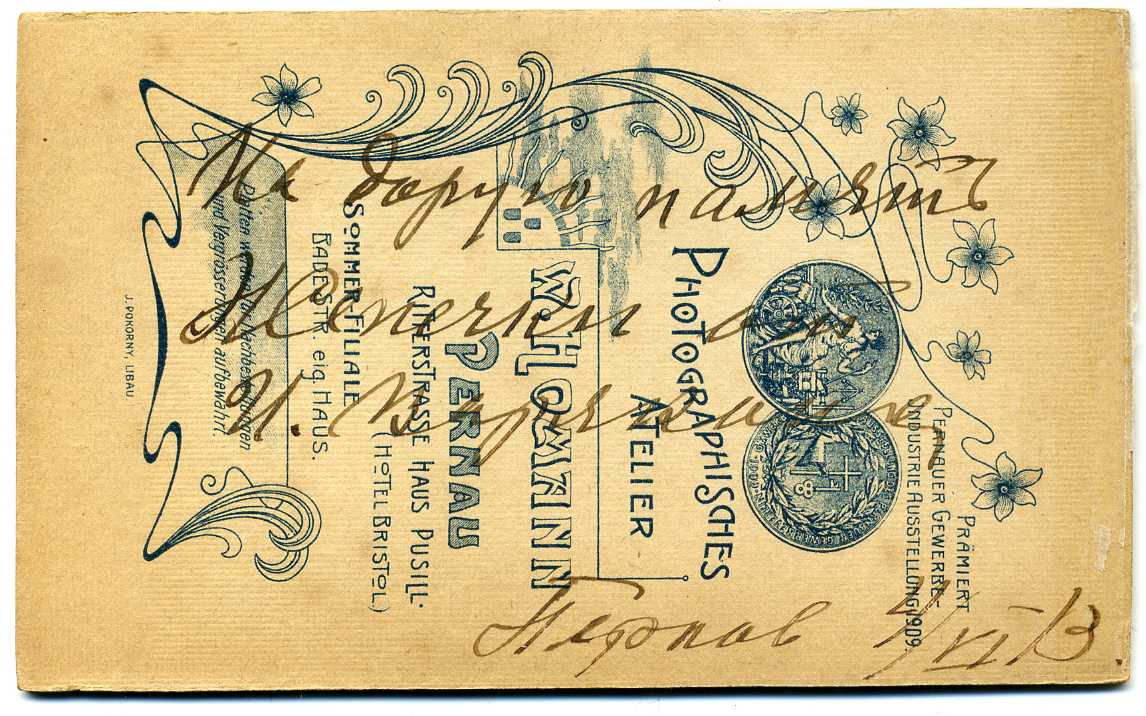 На добрую память
Женечки от
И.
Пернов 4/VI 13.
PRÄMIERT
PERNAUER GEWERBE-
INDUSTRIE AUSSTELLUNG 1909.
PHOTOGRAPHISCHES
ATELIER
W. HOMANN
PERNAU
RITTERSTRASSE HAUS PUSILL.
(HOTEL BRISTOL)
SOMMER-FILIALE
BADESTR. eig. HAUS.
Platten werden für Nachbestellungen
und Vergrösserungen aufbewahrt.
J. POKORNY, LIBAU.